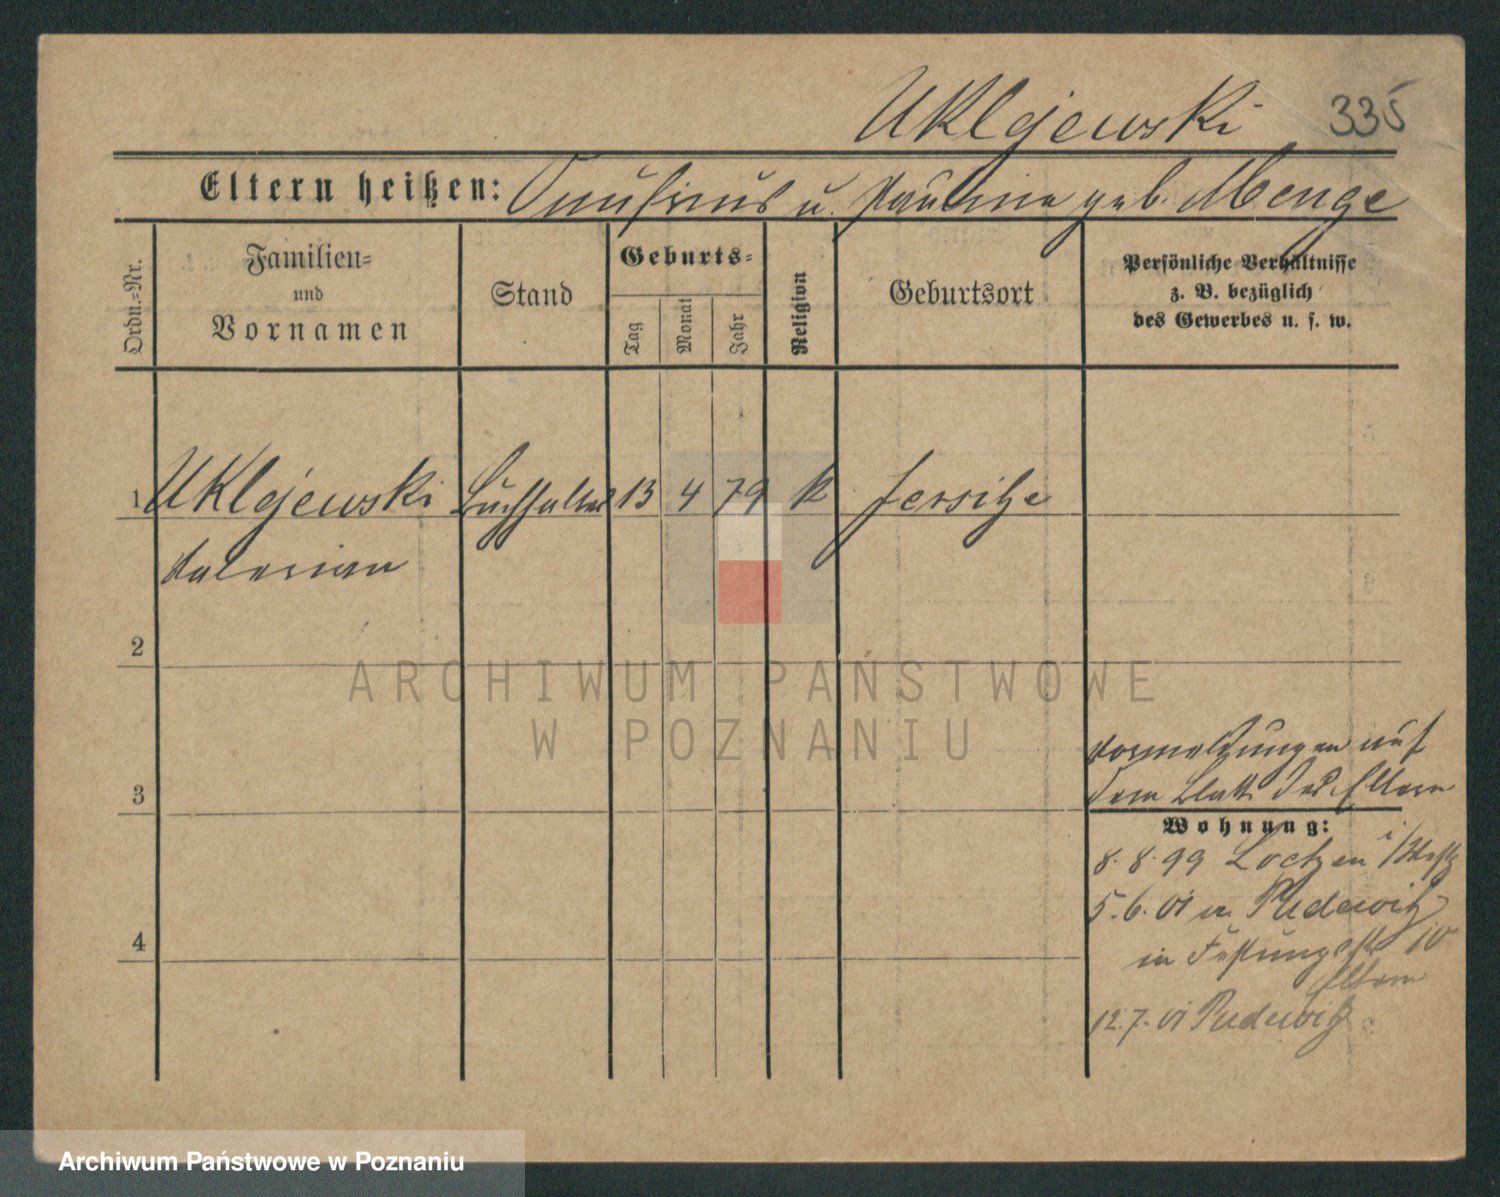 Uklejewski 335
Eltern heißen: Onufrius u. Pauline geb. Menge
Ordn.-Nr.
Familien-
und
Vornamen
Stand
Geburts-
Tag
Monat
Jahr
Religion
Geburtsort
Persönliche Verhältnisse
z. B. bezüglich
des Gewerbes u. s. w.
1 Uklejewski Buchhalter 13 4 79 k Jersitze
Valerian
2
ARCHIWUM PAŃSTWOWE
W POZNANIU
3
Vormeldungen auf
dem Blatt der Eltern
Wohnung:
8. 8. 99 Loetzen i/
5. 6. 01 in Pudewitz
4
in 10
Eltern
12. 7. 01 Pudewitz
Archiwum Państwowe w Poznaniu